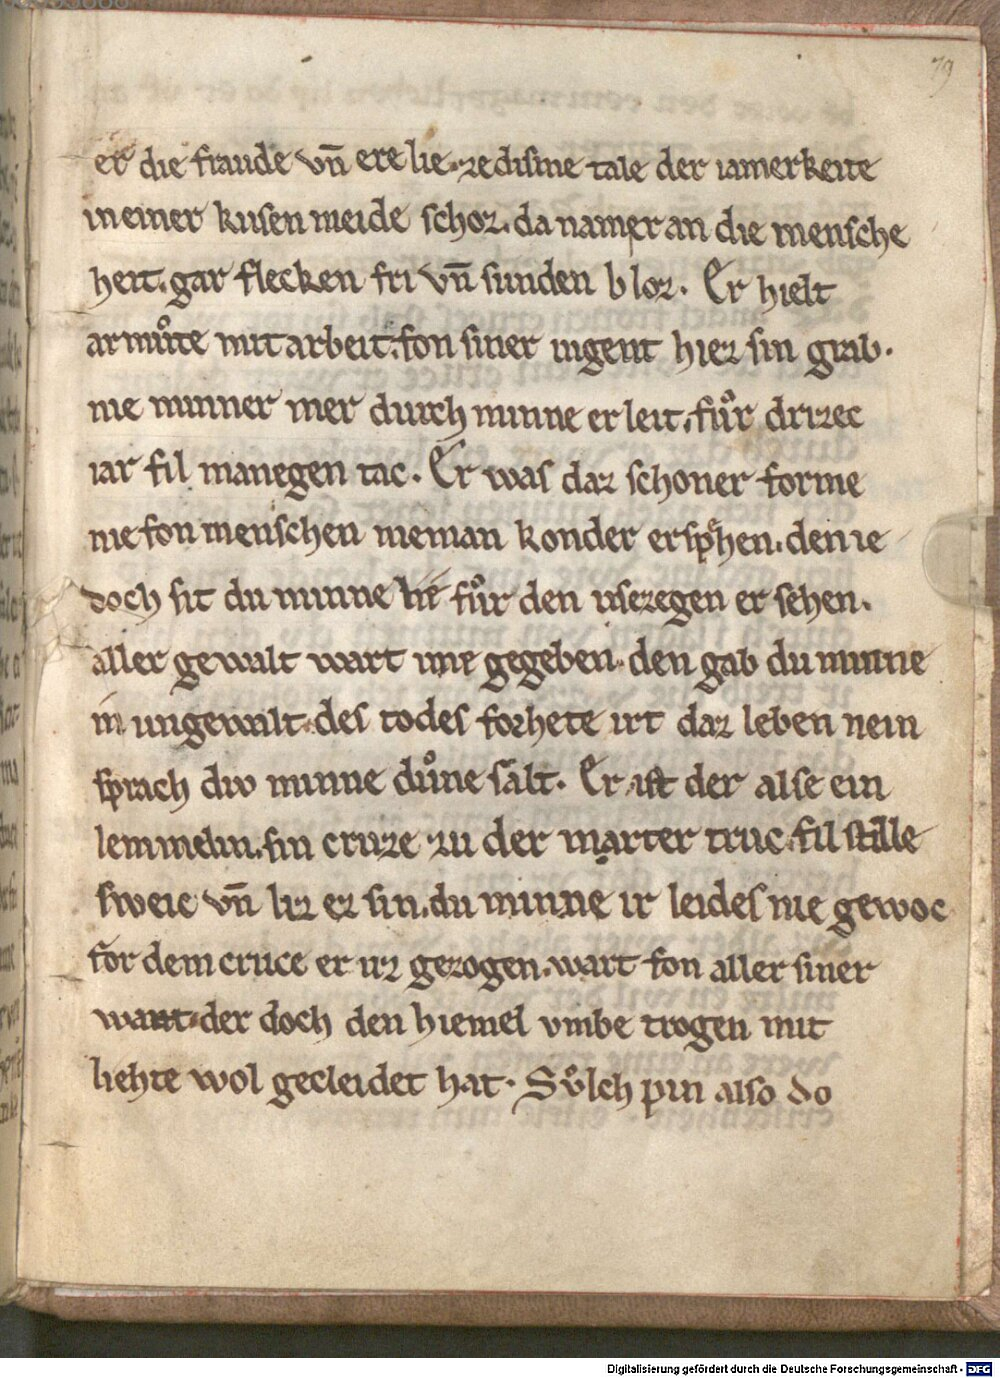 79
er die fraude vn̄ ere lie. ze disme tale der iamerkeite
in einer kusen meide schoz. da namer an die mensche
heit. gar flecken fri vn̄ sunden bloz. Er hielt
armuͦte mit arbeit. fon siner iugent hiez sin grab.
nie minner mer durch minne er leit. fuͦr drizec
iar fil manegen tac. Er was daz schoner forme
nie fon menschen nieman konder erspehen. den ie
doch sit du minne hie fuͦr den usezegen er sehen.
aller gewalt wart ime gegeben. den gab du minne
in ungewalt. des todes forhete irt daz leben nein
sprach div minne duͦne salt. Er ist der alse ein
lemmelin. sin cruze zu der marter truc. fil stille
sweic vn̄ liz ez sin. du minne ir leides nie gewoc
for dem cruce er uz gezogen. wart fon aller siner
want. der doch den hiemel vmbe trogen mit
liehte wol gecleidet hat. Suͦlch pin also do
Digitalisierung gefördert durch die Deutsche Forschungsgemeinschaft - DFG